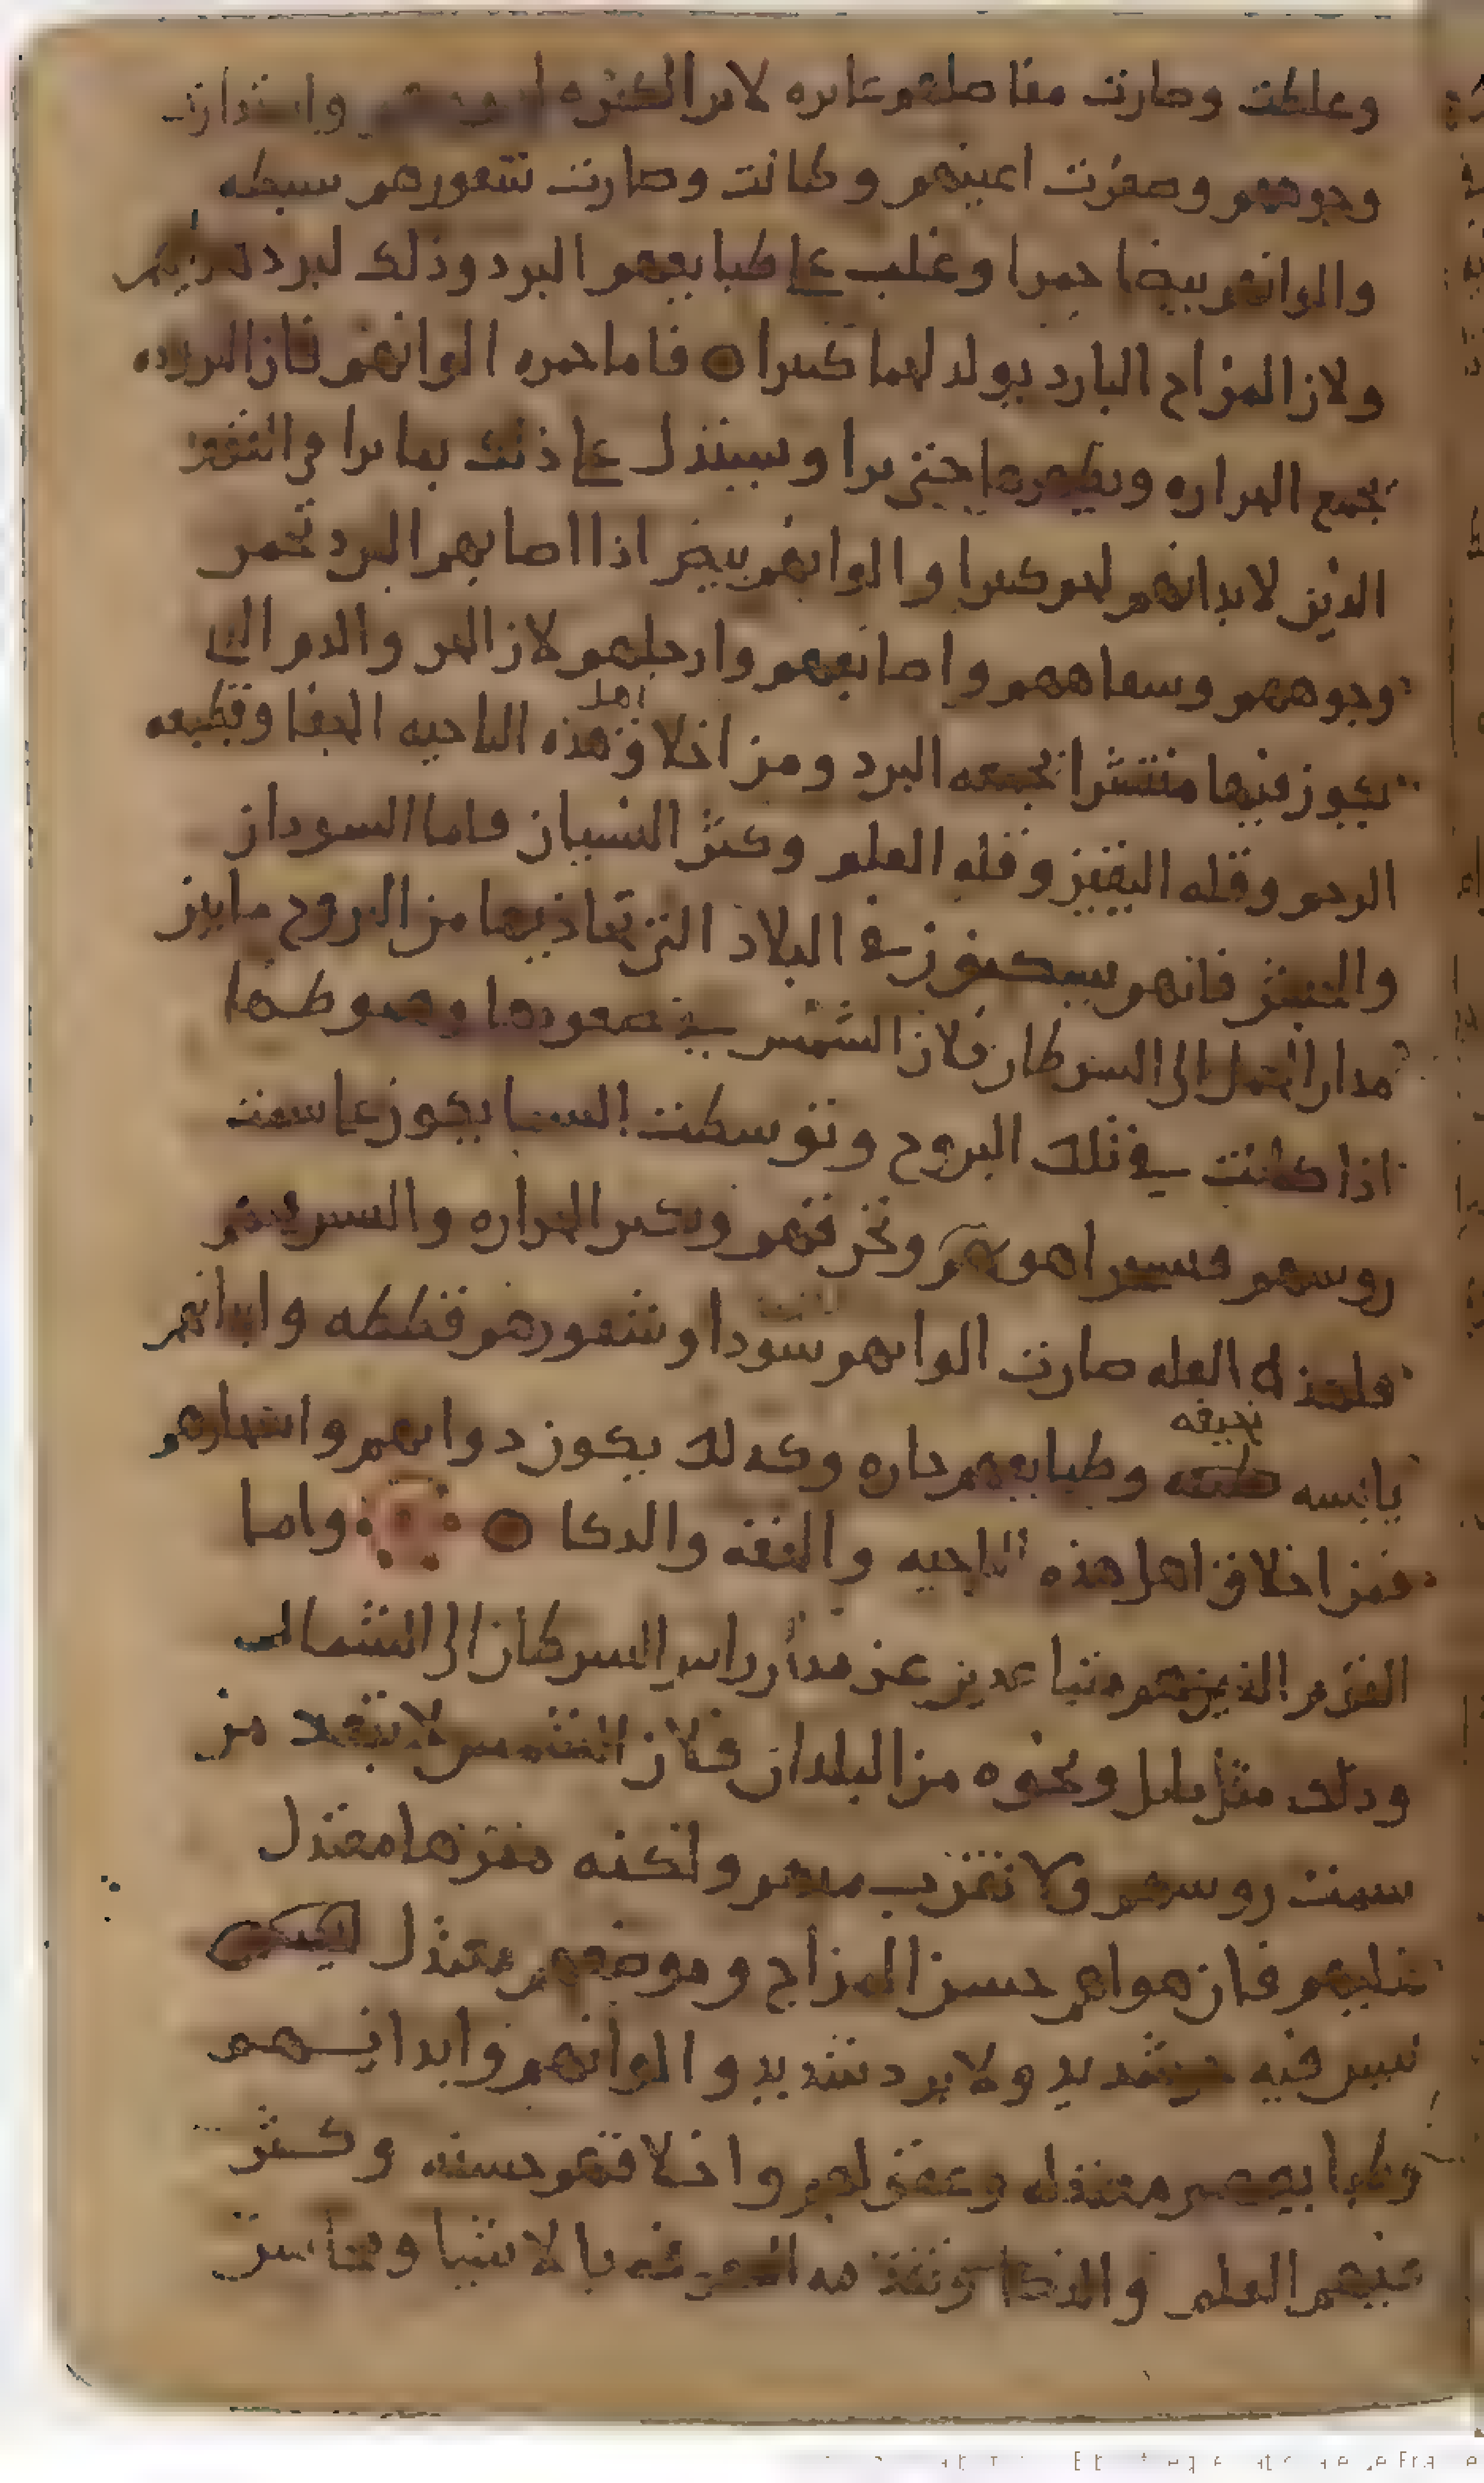 وغلظت وصارت مفاصلهم غايره لان الكثره واستدارت
وجوههم وصغرت اعينهم و كانت وصارت شعورهم سبطه
والوانهم بيضا حمرا وغلب على طبايعهم البرد وذلك لبرد
ولان المزاج البارد يولد لحما كثيرا ○ فاما حمره الوانهم فان البروده
تجمع الحراره ويظهرها حتى ترا وسيتدل على ذلك بما ترا في
الذين لابدانهم لحم كثيرا والوانهم بيض اذا اصابهم البرد تحمر
وجوههم وشفاههم واصابعهم وارجلهم لان الحر والدم الذي
يكون فيها منتشرا تجمعه البرد ومن اخلاق اهل هذه الناحيه الجفا وقطيعه
الرحم وقله اليقين وقله العلم وكثر النسيان فاما السودان
والحبش فانهم سيكنون في البلاد التي تحاذيها من البروج ما بين
مدار الحمل الى السرطان فلان الشمس في صعودها وهبوطها
اذا كانت في تلك البروج وتوسطت السما يكون على سمت
روسهم هواهم وتحرقهم ويكثر الحراره واليبس
فلهذه العله صارت الوانهم سودا وشعورهم قططه وابدانهم
يابسه نحيفه وطبايعهم حاره وكذلك يكون دوابهم واشجارهم
فمن اخلاق اهل هذه الناحيه والخفه والذكا ○ واما
القوم الذين هم متباعدين عن مدار راس السرطان الى الشمال
وذلك مثل بابل ونحوه من البلدان فلان الشمس لا تبعد من
سمت روسهم ولا تقرب منهم ولكنه ممرها معتدل
عليهم فان هواهم حسن المزاج وموضعهم معتدل
ليس فيه حر شديد ولا برد شديد والوانهم وابدانهم
وطبايعهم معتدله وعقولهم واخلاقهم حسنه وكثر
فيهم العلم والذكا المعرفه بالاشيا